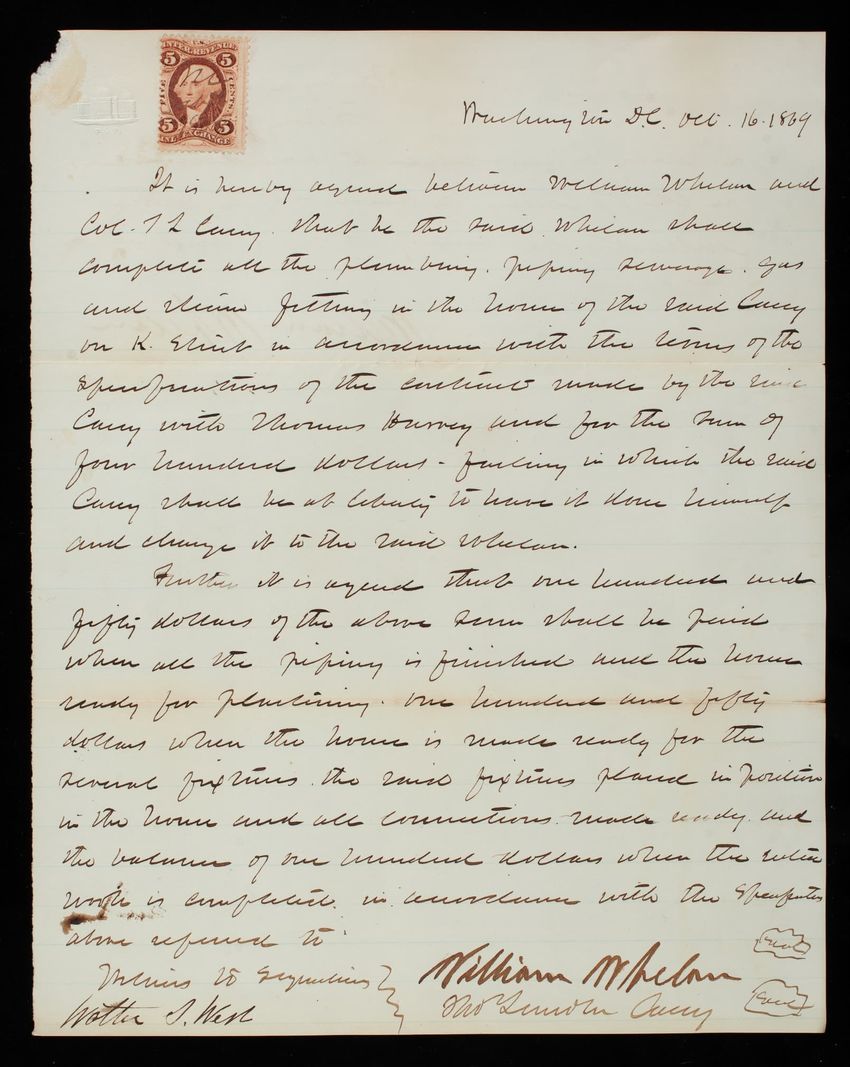 U.S.
INTER. REVENUE
5 5
FIVE CENTS
5 5
INL. EXCHANGE
Washington D.C. Oct. 16. 1869
It is hereby agreed between William Whelan and
Col. T L Casey. that he the said Whelan shall
complete all the plumbing. piping sewerage. gas
and steam fitting in the house of the said Casey
on K. Street in accordance with the terms of the
Specifications of the contract made by the said
Casey with Thomas Harvey and for the sum of
four hundred dollars - failing in which the said
Casey shall be at liberty to have it done himself
and charge it to the said Whelan.
Further it is agreed that one hundred and
fifty dollars of the above sum shall be paid
when all the piping is finished and the house
ready for plastering. one hundred and fifty
dollars when the house is made ready for the
several fixtures. the said fixtures placed in position
in the house and all connections made ready. and
the balance of one hundred dollars when the entire
work is completed in accordance with the Specifications
above referred to
Witness to Signatures
William Whelan Seal
Walter S. West
Thos Lincoln Casey Seal